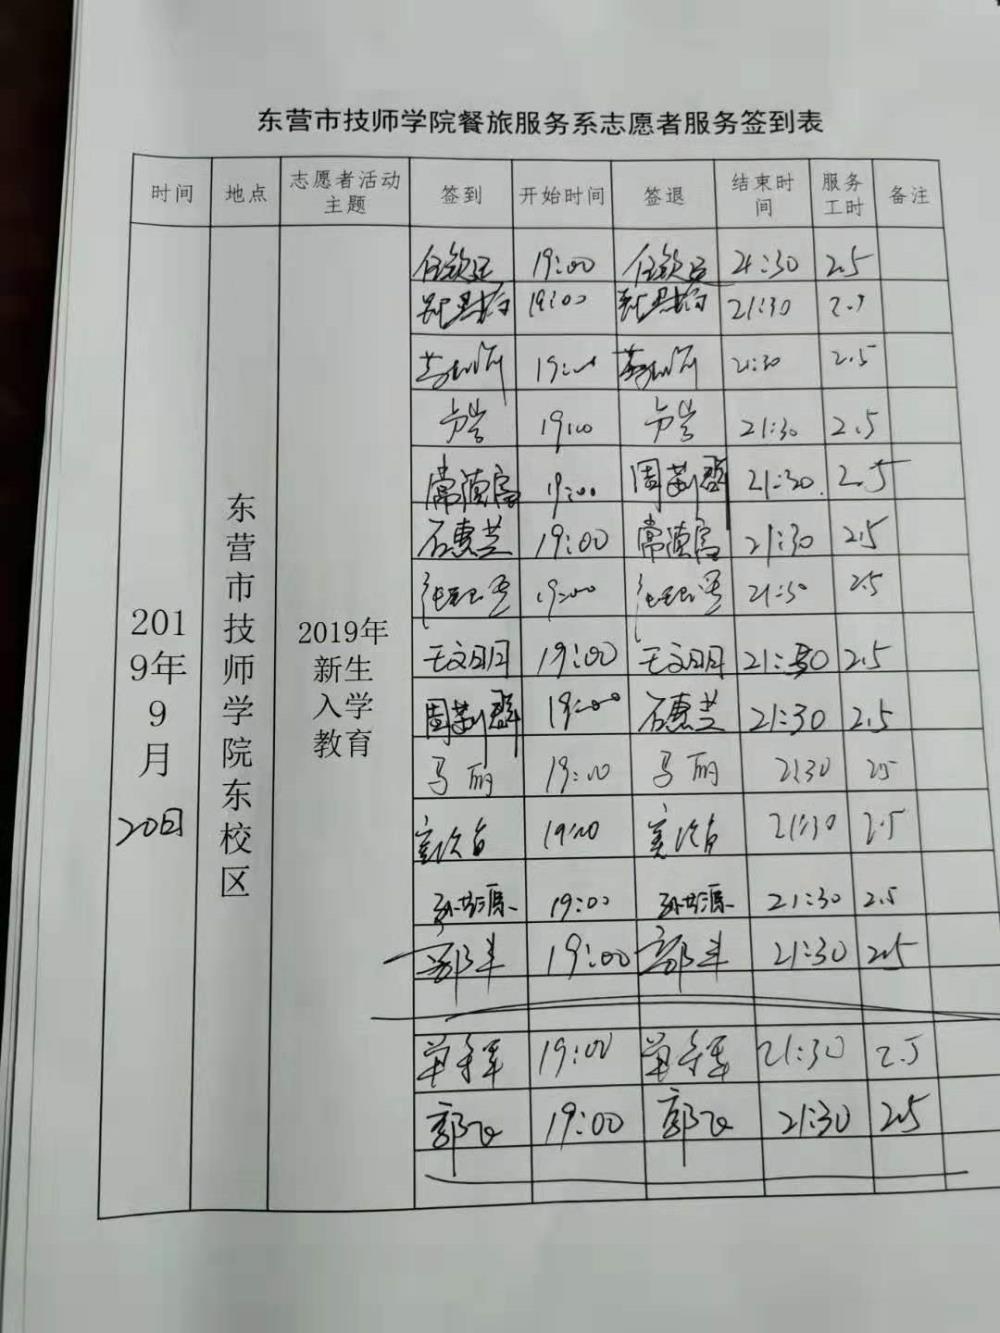 东营市技师学院餐旅服务系志愿者服务签到表
时间 地点 志愿者活动主题 签到 开始时间 签退 结束时间 服务工时 备注
2019年9月20日
东营市技师学院东校区
2019年新生入学教育
19:00 21:30 2.5
19:00 21:30 2.5
19:00 21:30 2.5
19:00 21:30 2.5
常德富 19:00 周莉群 21:30 2.5
石惠芝 19:00 常德富 21:30 2.5
19:00 21:30 2.5
王文明 19:00 王文明 21:30 2.5
周莉群 19:00 石惠芝 21:30 2.5
马丽 19:00 马丽 21:30 2.5
19:00 21:30 2.5
19:00 21:30 2.5
19:00 21:30 2.5
19:00 21:30 2.5
郭飞 19:00 郭飞 21:30 2.5